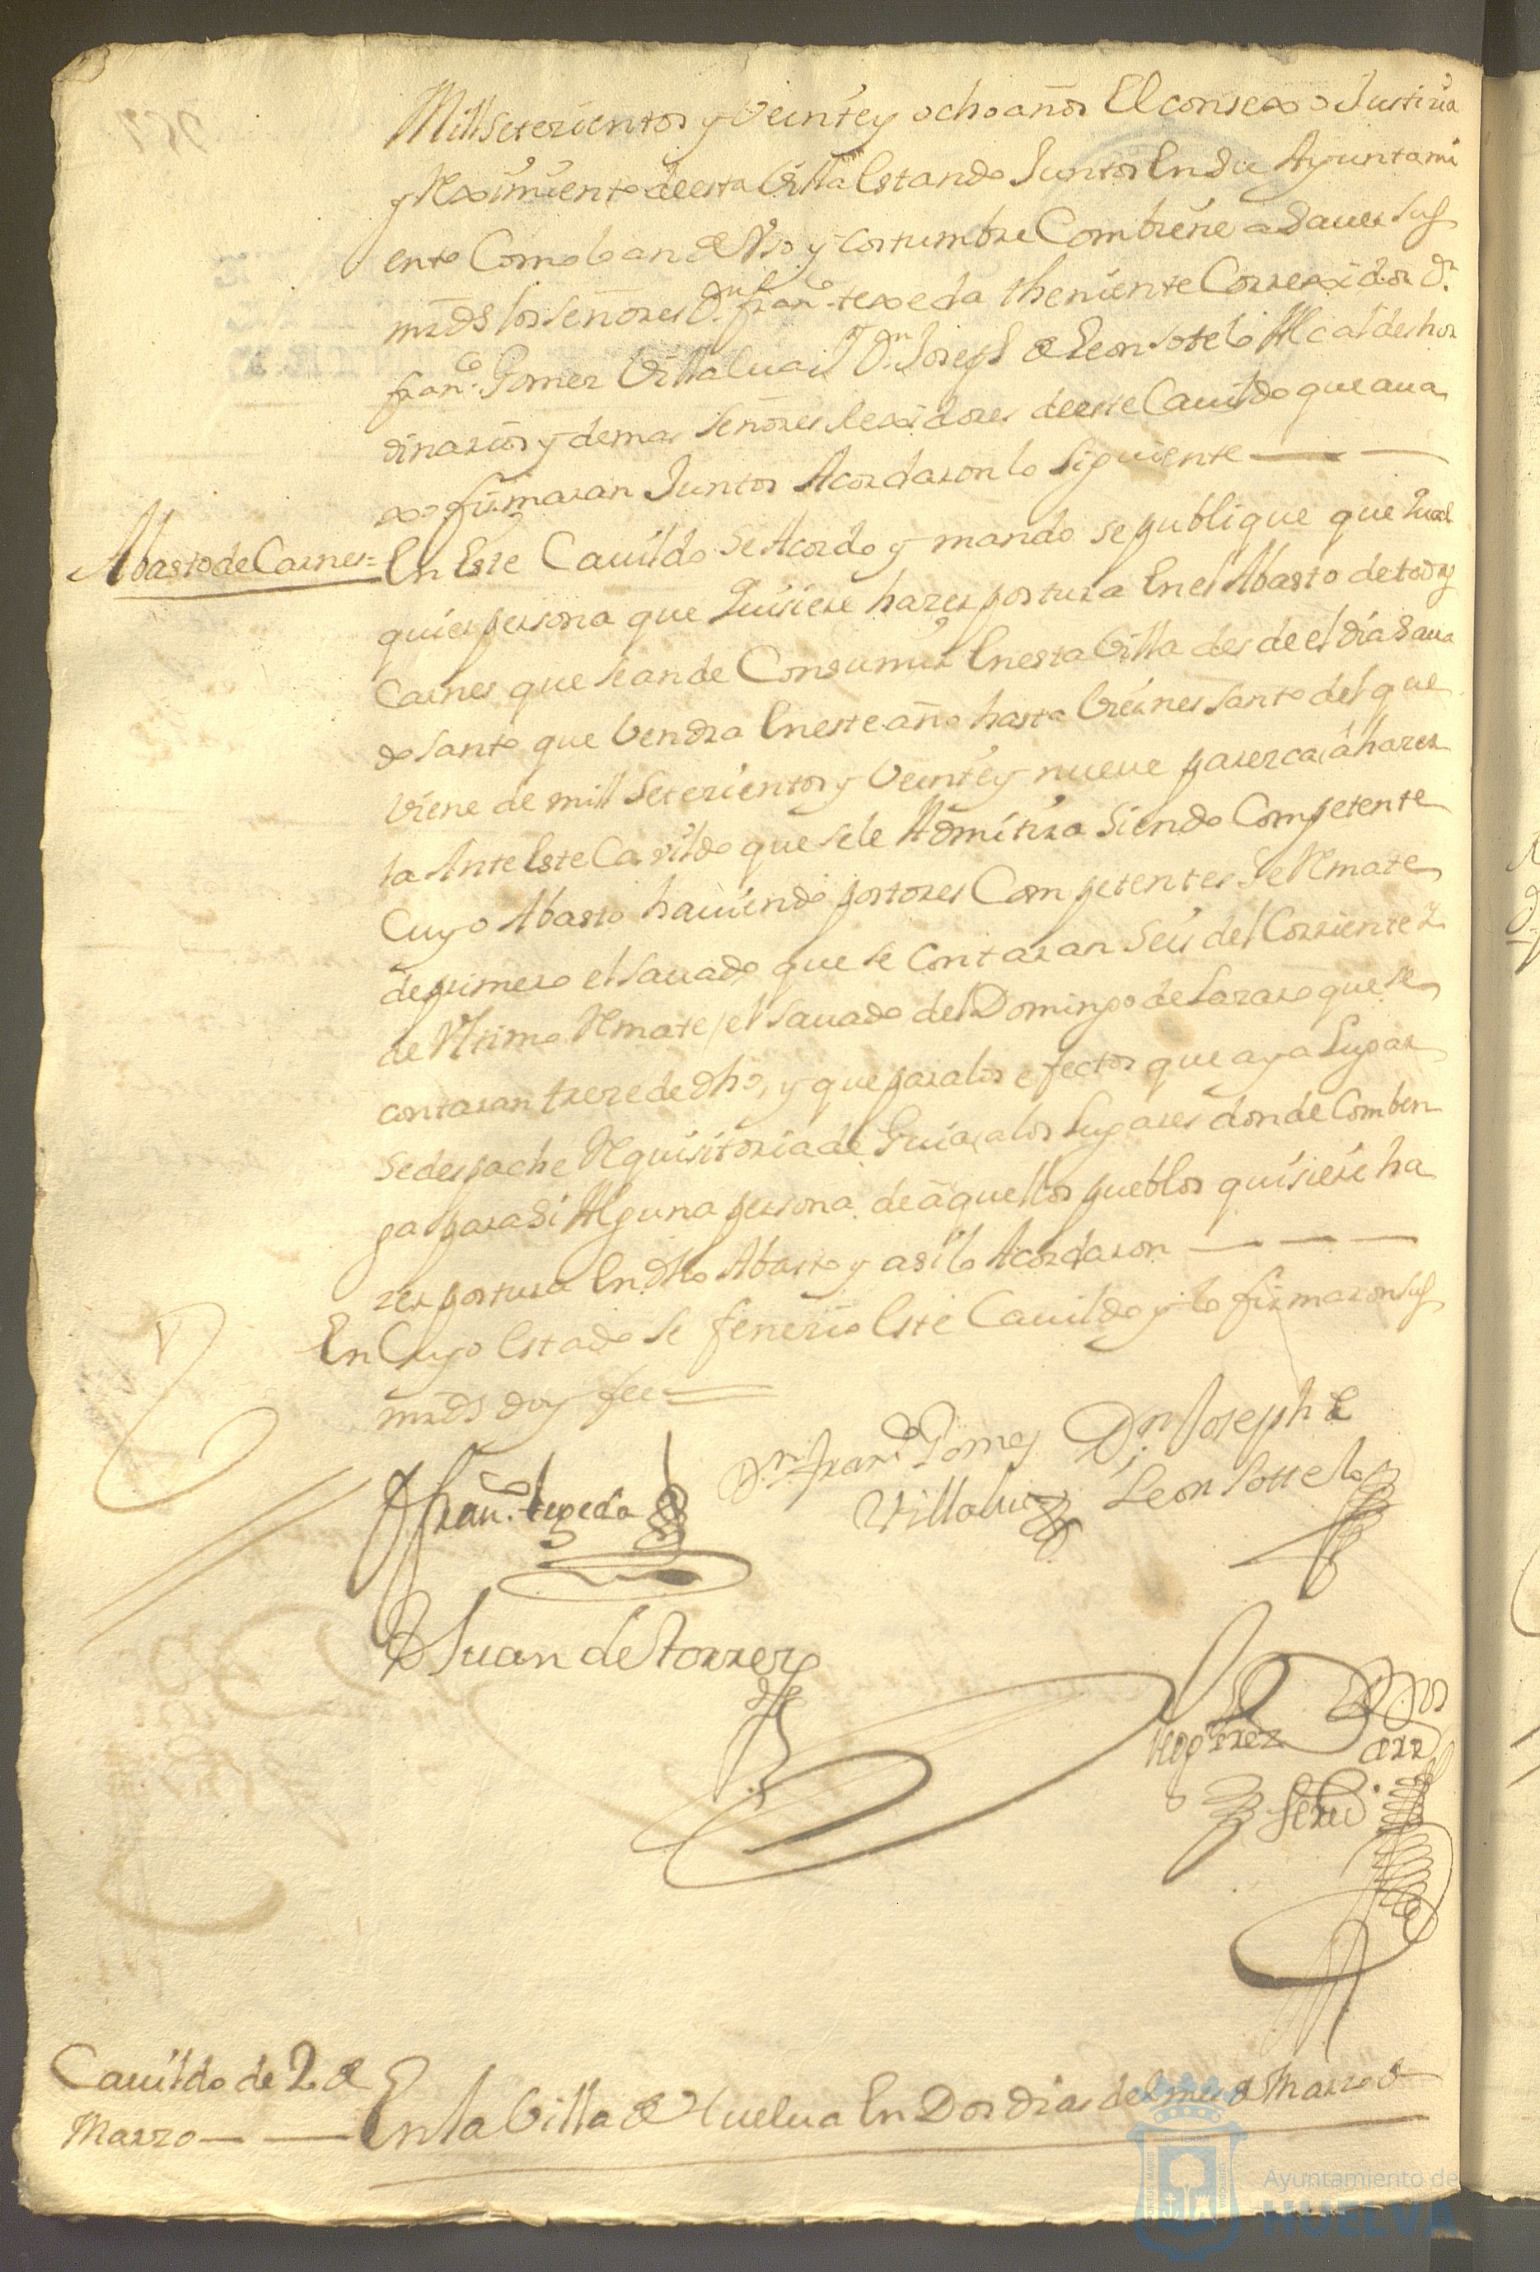 Mill Setezientos y Veinte y ocho años El consexo Justizia
y Reximiento deesta Villa Estando Juntos En su Ayuntami
ento Como lo an de Vso y costumbre Combiene a Sauer sus
mrds los señores Dn. franco. texeda theniente Correxidor Dn.
franco. Gomez Villalua Dn. Joseph de Leon Sotelo Alcaldes hor
dinarios y demas Señores Rexidores deeste Cauildo que aua
xo firmaran Juntos Acordaron lo Siguiente
Abasto de Carnes =
En Este Cauildo se Acordo y mando se publique que Qual
quier persona que Quisiere hazer postura En el Abasto de todas
Carnes que se an de Consumir En esta Villa desde el dia Saua
do santo que Vendra En este año hasta Viernes santo del que
Viene de mill Setezientos y Veinte y nueve parezca a hazer
la Ante Este Cavildo que se le Admitira Siendo Competente
Cuyo Abasto hauiendo postores Competentes Se Remate
de primero el sauado que se contaran Seis del Corriente y
de Vltimo Remate el Sauado del Domingo de Lazaro que se
contaran treze de dho, y que para los efectos que aya Lugar
se despache Requisitoria de Guia a los Lugares donde Comben
ga para si Alguna persona de aquellos pueblos quisiere ha
zer postura En dho Abasto y asi lo Acordaron
En Cuyo Estado se fenezio Este Cauildo y lo firmaron sus
mrds doy fee
franco. texeda
Dn. franco. Gomez
Villalua
Dn. Joseph de
Leon Sottelo
Juan de torres
Cauildo de 2 de
Marzo
En la Villa de Huelua En Dos dias del mes de Marzo de
Ayuntamiento de
HUELVA